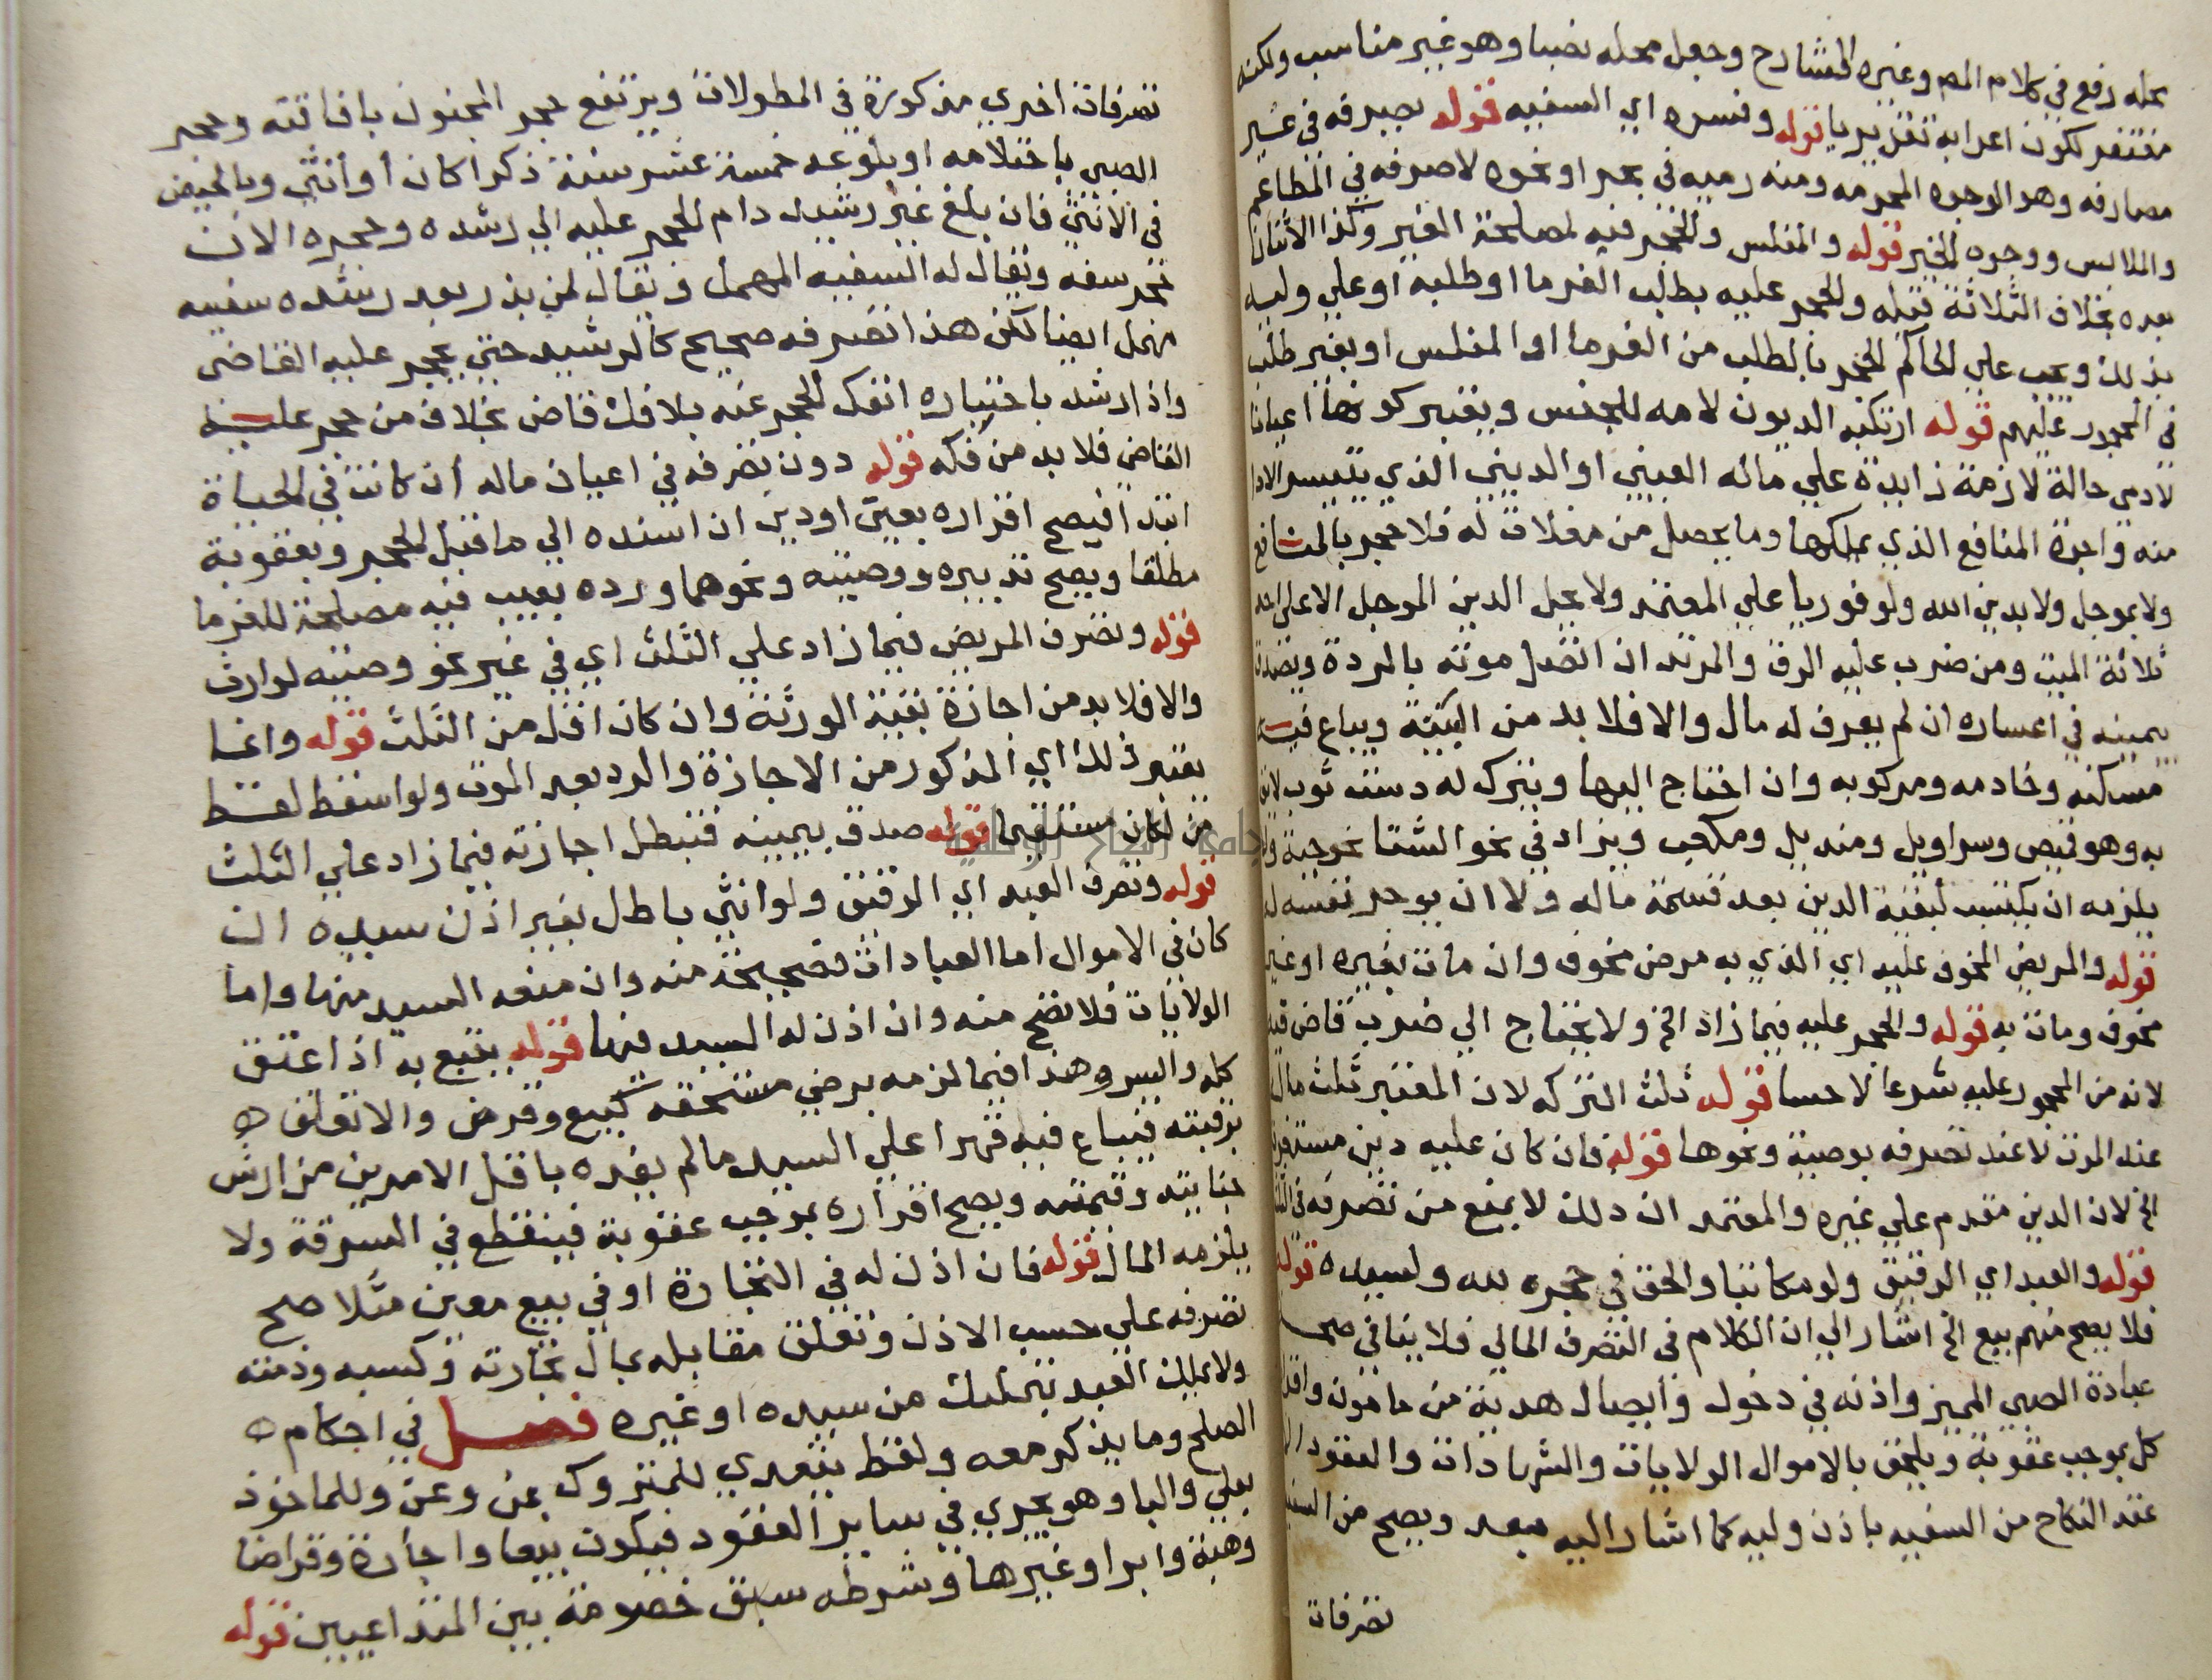 محله رفع في كلام المص وغيره الشارح وجعل محله نصبا وهو غير مناسب ولكنه
مغتفر لكون اعرابه تقديريا قوله وفسره اي السفيه قوله بصرفه في غير
مصارفه وهو الوجوه المحرمه ومنه رميه في بحر او نحوه لا صرفه في المطاعم
والملابس ووجوه الخير قوله والمفلس والحجر فيه لمصلحة الغير وكذا الاثنان
بعده بخلاف الثلاثة قبله والحجر عليه بطلب الغرما او طلبه او علي وليه
بذلك ويجب علي الحاكم الحجر بالطلب من الغرما او المفلس او بغير طلب
في المحجور عليهم قوله ارتكبه الديون لامه للجنس ويعتبر كونها اعيانا
لادمي حالة لازمة زايدة علي ماله العيني او الديني الذي يتيسر الادا
منه واجرة المنافع الذي يملكها وما يحصل من مغلات له فلا حجر بالمنافع
ولا بموجل ولا بدين الله ولو فوريا علي المعتمد ولا يحل الدين الموجل الا علي احد
ثلاثة الميت ومن ضرب عليه الرق والمرتد ان اتصل موته بالردة ويصدق
بيمينه في اعساره ان لم يعرف له مال والا فلا بد من البينة ويباع فيه
مسكنه وخادمه ومركوبه وان احتاج اليها ويترك له دست ثوب لايق
به وهو قميص وسراويل ومنديل ومكعب ويزاد في نحو الشتا نحو جبة ولا
يلزمه ان يكتسب لبقية الدين بعد قسمة ماله ولا ان يوجر نفسه له
قوله والمريض المخوف عليه اي الذي به مرض مخوف وان مات بغيره او غير
مخوف ومات به قوله والحجر عليه فيما زاد الخ ولا يحتاج الي ضرب قاض فيه
لانه من المحجور عليه شرعا لا حسا قوله ثلث التركه لان المعتبر ثلث مال
عند الموت لا عند تصرفه بوصية ونحوها قوله فان كان عليه دين مستغرق
الخ لان الدين مقدم علي غيره والمعتمد ان ذلك لا يمنع من تصرفه في الثلث
قوله والعبد اي الرقيق ولو مكاتبا والحق في حجره لله ولسيده قوله
فلا يصح منهم بيع الخ اشار الي ان الكلام في التصرف المالي فلا ينافي صحة
عبادة الصبي المميز واذنه في دخول وايصال هدية من مامون واقرار
كل بموجب عقوبة ويلحق بالاموال الولايات والشهادات والعقود
عقد النكاح من السفيه باذن وليه كما اشار اليه بعد ويصح من السفيه
تصرفات
تصرفات اخري مذكورة في المطولات ويرتفع حجر المجنون بافاقته وحجر
الصبي باحتلامه او بلوغه خمسة عشر سنة ذكرا كان أو أنثي وبالحيض
في الانثي فان بلغ غير رشيد دام الحجر عليه الي رشده وحجره الان
حجر سفه ويقال له السفيه المهمل ويقال لمن بذر بعد رشده سفيه
مهمل ايضا لكن هذا تصرفه صحيح كالرشيد حتي يحجر عليه القاضي
واذا رشد باختباره انفك الحجر عنه بلا فك قاض بخلاف من حجر عليه
القاضي فلا بد من فكه قوله دون تصرفه في اعيان ماله أن كانت في الحياة
ابتدا فيصح اقراره بعين او دين ان اسنده الي ما قبل الحجر وبعقوبة
مطلقا ويصح تدبيره ووصيته ونحوهما ورده بعيب فيه مصلحة للغرما
قوله وتصرف المريض فيما زاد علي الثلث اي في غير نحو وصيته لوارث
والا فلا بد من اجازة بقية الورثة وان كان اقل من الثلث قوله وانما
يعتبر ذلك اي المذكور من الاجازة والرد بعد الموت ولو اسقط لفظ
من لكان مستقيما قوله صدق بيمينه فتبطل اجازته فيما زاد علي الثلث
قوله وتصرف العبد اي الرقيق ولو انثي باطل بغير اذن سيده ان
كان في الاموال اما العبادات فتصح منه وان منعه السيد منها واما
الولايات فلا تصح منه وان اذن له السيد فيها قوله يتبع به اذا عتق
كله وايسر وهذا فيما لزمه برضي مستحقه كبيع وقرض والا تعلق
برقبته فيباع فيه قهرا علي السيد ما لم يفده باقل الامرين من ارش
جنايته وقيمته ويصح اقراره بموجب عقوبة فيقطع في السرقة ولا
يلزمه المال قوله فان اذن له في التجارة او في بيع معين مثلا صح
تصرفه علي حسب الاذن وتعلق مقابله بمال تجارته وكسبه وذمته
ولا يملك العبد بتمليك من سيده او غيره فصل في احكام
الصلح وما يذكر معه ولفظ يتعدي للمتروك بمن وعن وللماخوذ
بعلي والبا وهو يجري في ساير العقود فيكون بيعا واجارة وقراضا
وهبة وابرا وغيرها وشرطه سبق خصومة بين المتداعيين قوله